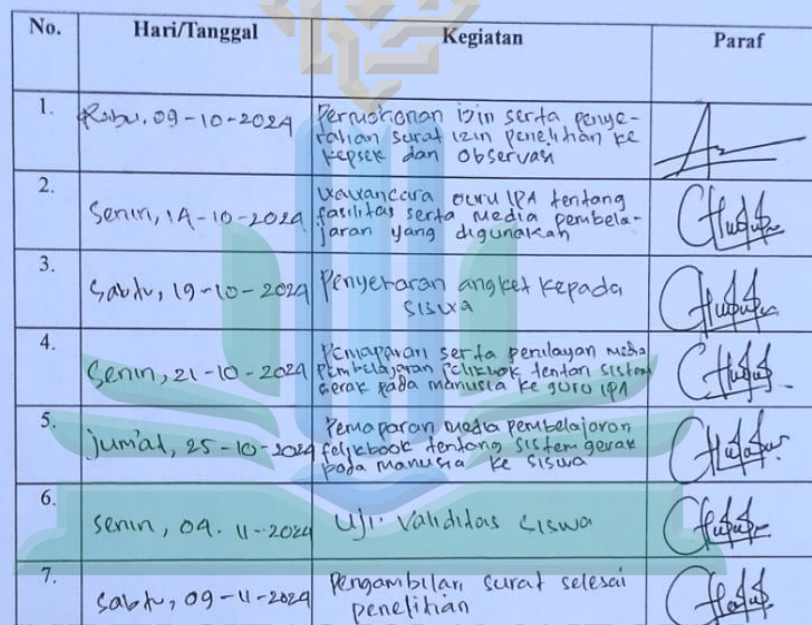 No. Hari/Tanggal Kegiatan Paraf
1. Rabu, 09-10-2024 Permohonan izin serta penye-
rahan surat izin penelitian ke
kepsek dan observasi
2. Senin, 14-10-2024 wawancara guru IPA tentang
fasilitas serta media pembela-
jaran yang digunakan
3. Sabtu, 19-10-2024 Penyebaran angket kepada
siswa
4. Senin, 21-10-2024 Pemaparan serta penilayan media
pembelajaran felikbok tentan sistem
gerak pada manusia ke guru IPA
5. jum'at, 25-10-2024 Pemaparan media pembelajaran
felikbook tentang sistem gerak
pada manusia ke siswa
6. senin, 04. 11-2024 Uji validitas siswa
7. sabtu, 09-11-2024 Pengambilan surat selesai
penelitian